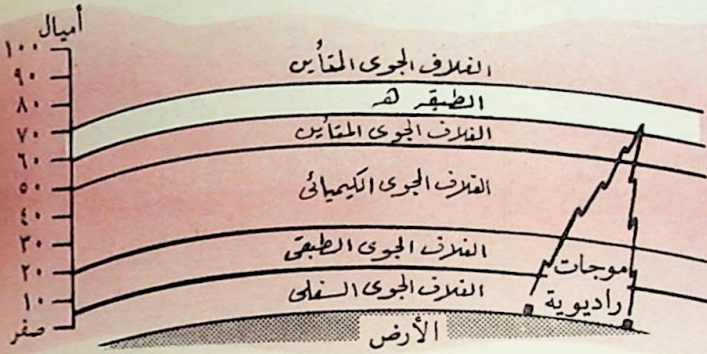 أميال
١٠٠
٩٠
٨٠
٧٠
٦٠
٥٠
٤٠
٣٠
٢٠
١٠
صفر
الغلاف الجوى المتأين
الطبقة هـ
الغلاف الجوى المتأين
الغلاف الجوى الكيميائى
الغلاف الجوى الطبقى
الغلاف الجوى السفلى
موجات
راديوية
الأرض